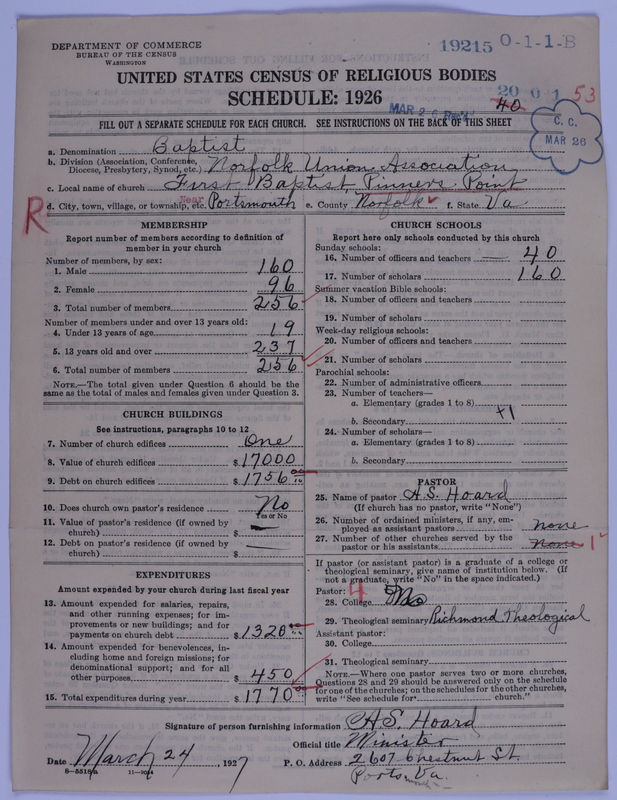 DEPARTMENT OF COMMERCE
BUREAU OF THE CENSUS
WASHINGTON
19215 0-1-1-B
UNITED STATES CENSUS OF RELIGIOUS BODIES
SCHEDULE: 1926
20 0 1 53
40
MAR 26 Rec'd
C. C.
MAR 26
FILL OUT A SEPARATE SCHEDULE FOR EACH CHURCH. SEE INSTRUCTIONS ON THE BACK OF THIS SHEET
a. Denomination Baptist
b. Division (Association, Conference, Diocese, Presbytery, Synod, etc.) Norfolk Union Association
c. Local name of church First Baptist, Pinners Point
R
d. City, town, village, or township, etc. Near Portsmouth e. County Norfolk f. State Va
MEMBERSHIP
Report number of members according to definition of
member in your church
Number of members, by sex:
1. Male 160
2. Female 96
3. Total number of members 256
Number of members under and over 13 years old:
4. Under 13 years of age 19
5. 13 years old and over 237
6. Total number of members 256
NOTE.—The total given under Question 6 should be the
same as the total of males and females given under Question 3.
CHURCH BUILDINGS
See instructions, paragraphs 10 to 12
7. Number of church edifices One
8. Value of church edifices $17000
9. Debt on church edifices $1756 00
10. Does church own pastor's residence No
Yes or No
11. Value of pastor's residence (if owned by
church) $ —
12. Debt on pastor's residence (if owned by
church) $ —
EXPENDITURES
Amount expended by church during last fiscal year
13. Amount expended for salaries, repairs,
and other running expenses; for im-
provements or new buildings; and for
payments on church debt $1320 00
14. Amount expended for benevolences, in-
cluding home and foreign missions; for
denominational support; and for all
other purposes $450
15. Total expenditures during year $1770 00
CHURCH SCHOOLS
Report here only schools conducted by this church
Sunday schools:
16. Number of officers and teachers 40
17. Number of scholars 160
Summer vacation Bible schools:
18. Number of officers and teachers
19. Number of scholars
Week-day religious schools:
20. Number of officers and teachers
21. Number of scholars
Parochial schools:
22. Number of administrative officers
23. Number of teachers—
a. Elementary (grades 1 to 8)
b. Secondary
24. Number of scholars—
a. Elementary (grades 1 to 8)
b. Secondary
PASTOR
25. Name of pastor A.S. Hoard
(If church has no pastor, write "None")
26. Number of ordained ministers, if any, em-
ployed as assistant pastors none
27. Number of other churches served by the
pastor or his assistants None 1
If pastor (or assistant pastor) is a graduate of a college or
theological seminary, give name of institution below. (If
not a graduate, write "No" in the space indicated.)
Pastor: 4
28. College No
29. Theological seminary Richmond Theological
Assistant pastor:
30. College
31. Theological seminary
NOTE.—Where one pastor serves two or more churches,
Questions 28 and 29 should be answered only on the schedule
for one of the churches; on the schedules for the other churches,
write "See schedule for church."
Signature of person furnishing information A.S. Hoard
Official title Minister
Date March 24, 1927 P. O. Address 2607 Chestnut St.
Ports Va.
8—5518a 11—9024